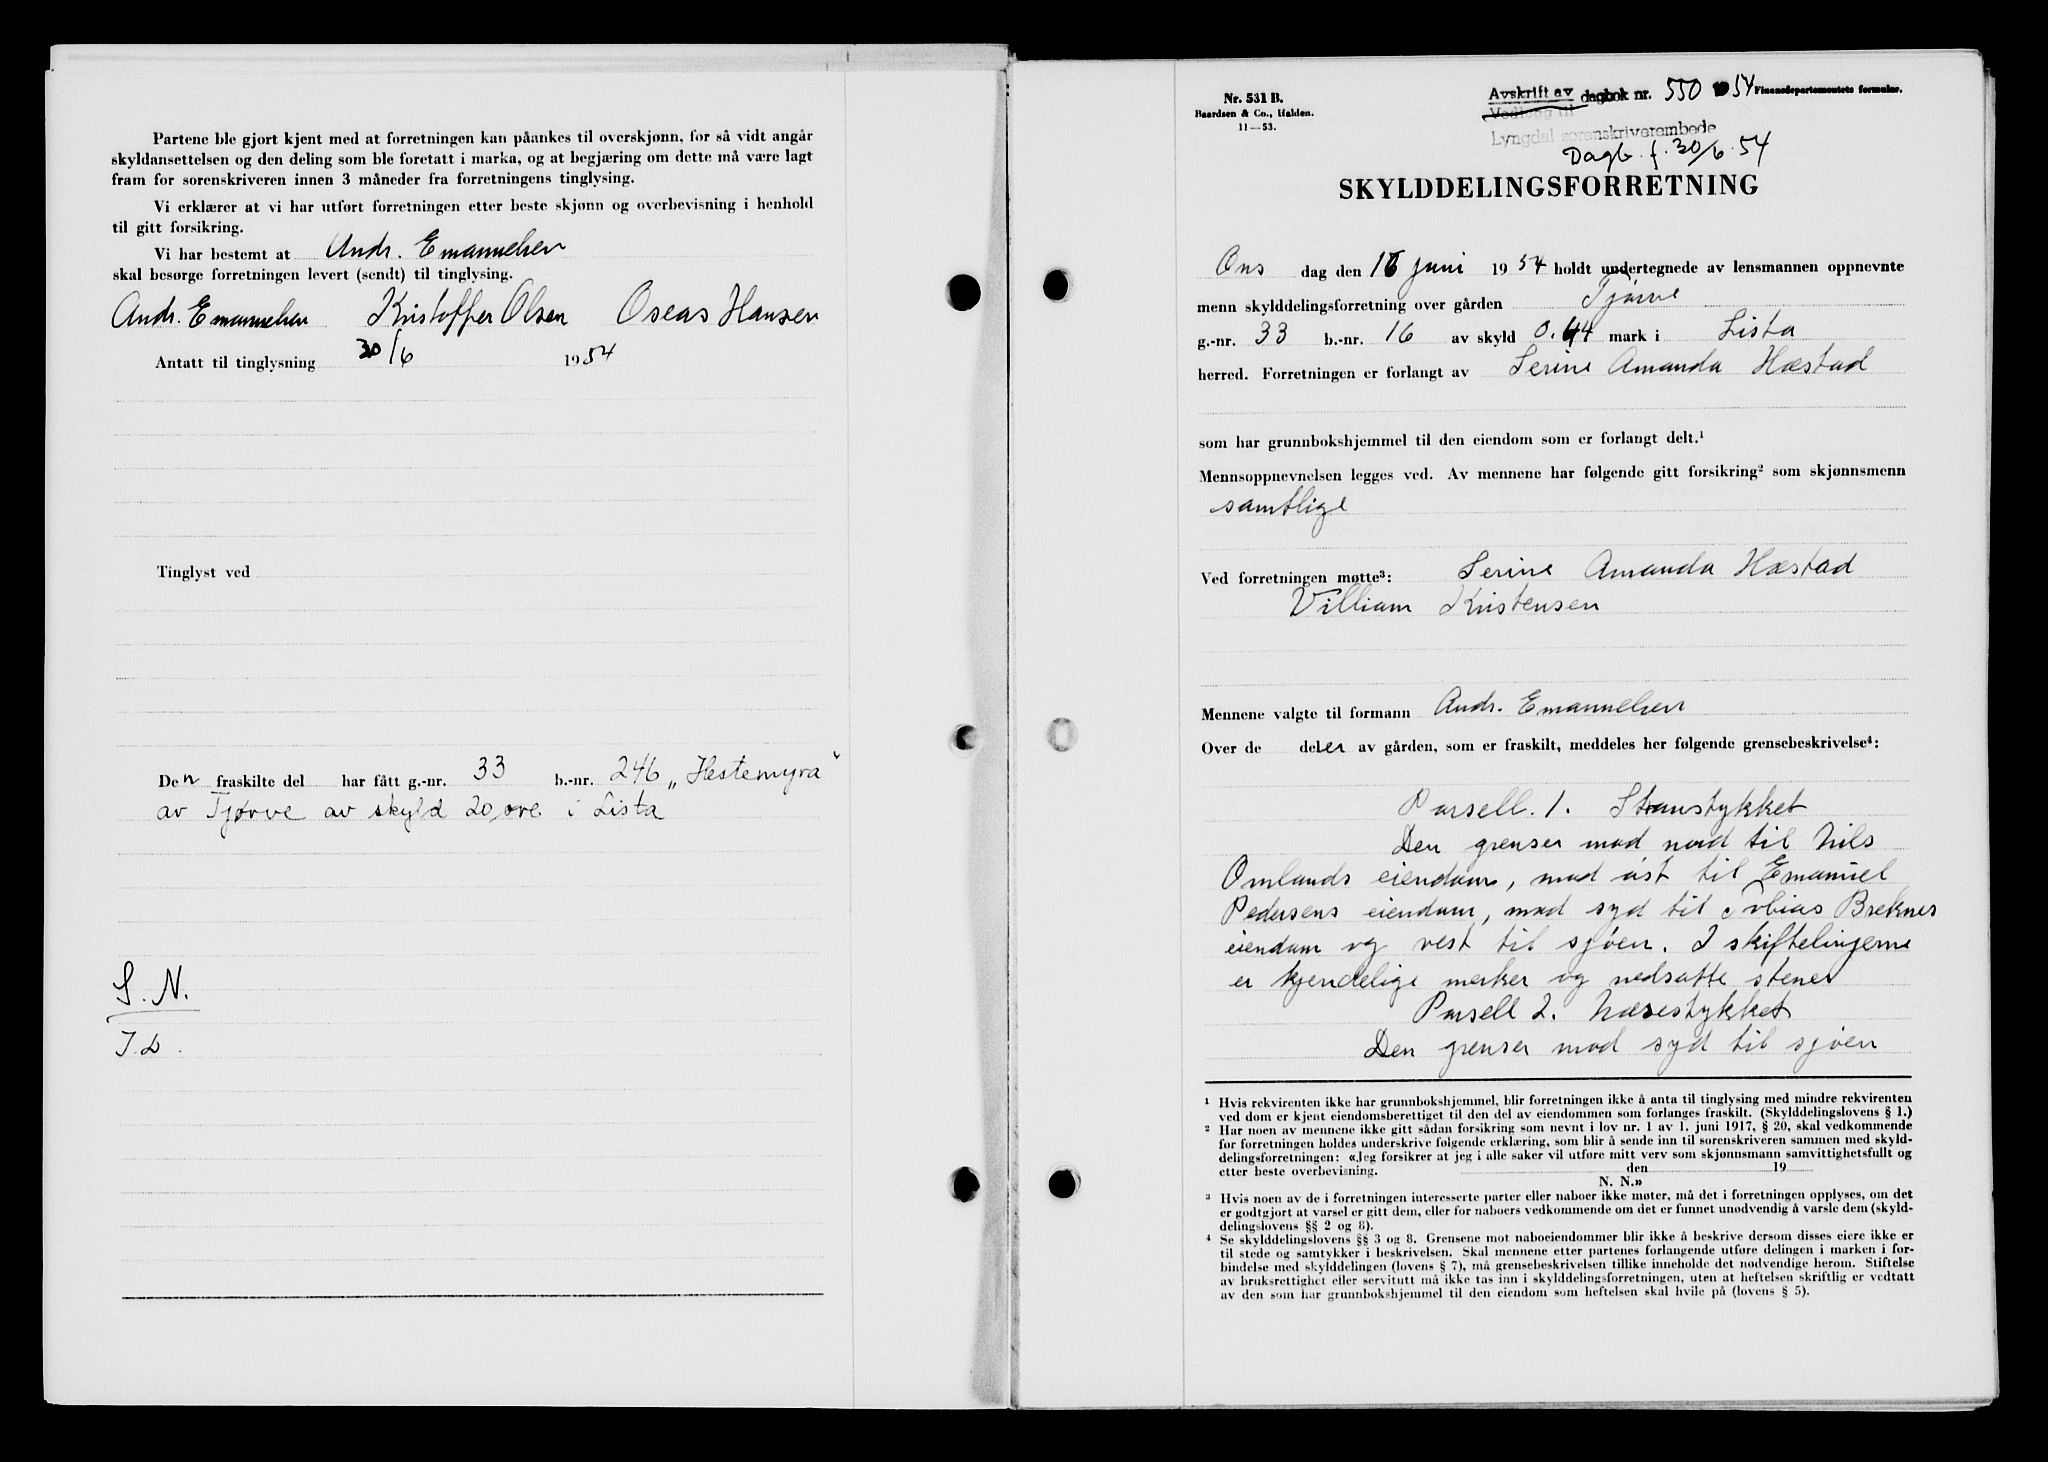 Partene ble gjort kjent med at forretningen kan påankes til overskjønn, for så vidt angår
skyldansettelsen og den deling som ble foretatt i marka, og at begjæring om dette må være lagt
fram for sorenskriveren innen 3 måneder fra forretningens tinglysing.
Vi erklærer at vi har utført forretningen etter beste skjønn og overbevisning i henhold
til gitt forsikring.
Vi har bestemt at Andr. Emanuelsen
skal besørge forretningen levert (sendt) til tinglysing.
Andr. Emanuelsen Kristoffer Olsen Oseas Hansen
Antatt til tinglysning 30/6 1954
Tinglyst ved
Den fraskilte del har fått g.-nr. 33 b.-nr. 246 „Hestemyra"
av Tjørve av skyld 20 øre i Lista
S. N.
Nr. 531 B.
Baardsen & Co., Halden.
11—53.
Avskrift av dagbok nr. 550 54 Finansdepartementets formular.
Vedlegg til
Lyngdal sorenskriverembede
Dagb. f. 30/6. 54
SKYLDDELINGSFORRETNING
Ons dag den 16 juni 1954 holdt undertegnede av lensmannen oppnevnte
menn skylddelingsforretning over gården Tjørve
g.-nr. 33 b.-nr. 16 av skyld 0.44 mark i Lista
herred. Forretningen er forlangt av Serine Amanda Hæstad
som har grunnbokshjemmel til den eiendom som er forlangt delt.¹
Mennsoppnevnelsen legges ved. Av mennene har følgende gitt forsikring² som skjønnsmenn
samtlige
Ved forretningen møtte³: Serine Amanda Hæstad
Villiam Kristensen
Mennene valgte til formann Andr. Emanuelsen
Over de deler av gården, som er fraskilt, meddeles her følgende grensebeskrivelse⁴:
Parsell. 1. Stranstykket
Den grenser mod nord til Nils
Omlands eiendom, mod øst til Emanuel
Pedersens eiendom, mod syd til Tobias Breknes
eiendom og vest til sjøen. I skiftelinjerne
er kjendelige merker og nedsatte stener
Parsell 2. Næsestykket
Den grenser mod syd til sjøen
¹ Hvis rekvirenten ikke har grunnbokshjemmel, blir forretningen ikke å anta til tinglysing med mindre rekvirenten
ved dom er kjent eiendomsberettiget til den del av eiendommen som forlanges fraskilt. (Skylddelingslovens § 1.)
² Har noen av mennene ikke gitt sådan forsikring som nevnt i lov nr. 1 av 1. juni 1917, § 20, skal vedkommende
før forretningen holdes underskrive følgende erklæring, som blir å sende inn til sorenskriveren sammen med skyld-
delingsforretningen: «Jeg forsikrer at jeg i alle saker vil utføre mitt verv som skjønnsmann samvittighetsfullt og
etter beste overbevisning. den 19
N. N.»
³ Hvis noen av de i forretningen interesserte parter eller naboer ikke møter, må det i forretningen opplyses, om det
er godtgjort at varsel er gitt dem, eller for naboers vedkommende om det er funnet unødvendig å varsle dem (skyld-
delingslovens §§ 2 og 8).
⁴ Se skylddelingslovens §§ 3 og 8. Grensene mot naboeiendommer blir ikke å beskrive dersom disses eiere ikke er
til stede og samtykker i beskrivelsen. Skal mennene etter partenes forlangende utføre delingen i marken i for-
bindelse med skylddelingen (lovens § 7), må grensebeskrivelsen tillike inneholde det nødvendige herom. Stiftelse
av bruksrettighet eller servitutt må ikke tas inn i skylddelingsforretningen, uten at heftelsen skriftlig er vedtatt
av den som har grunnbokshjemmel til den eiendom som heftelsen skal hvile på (lovens § 5).